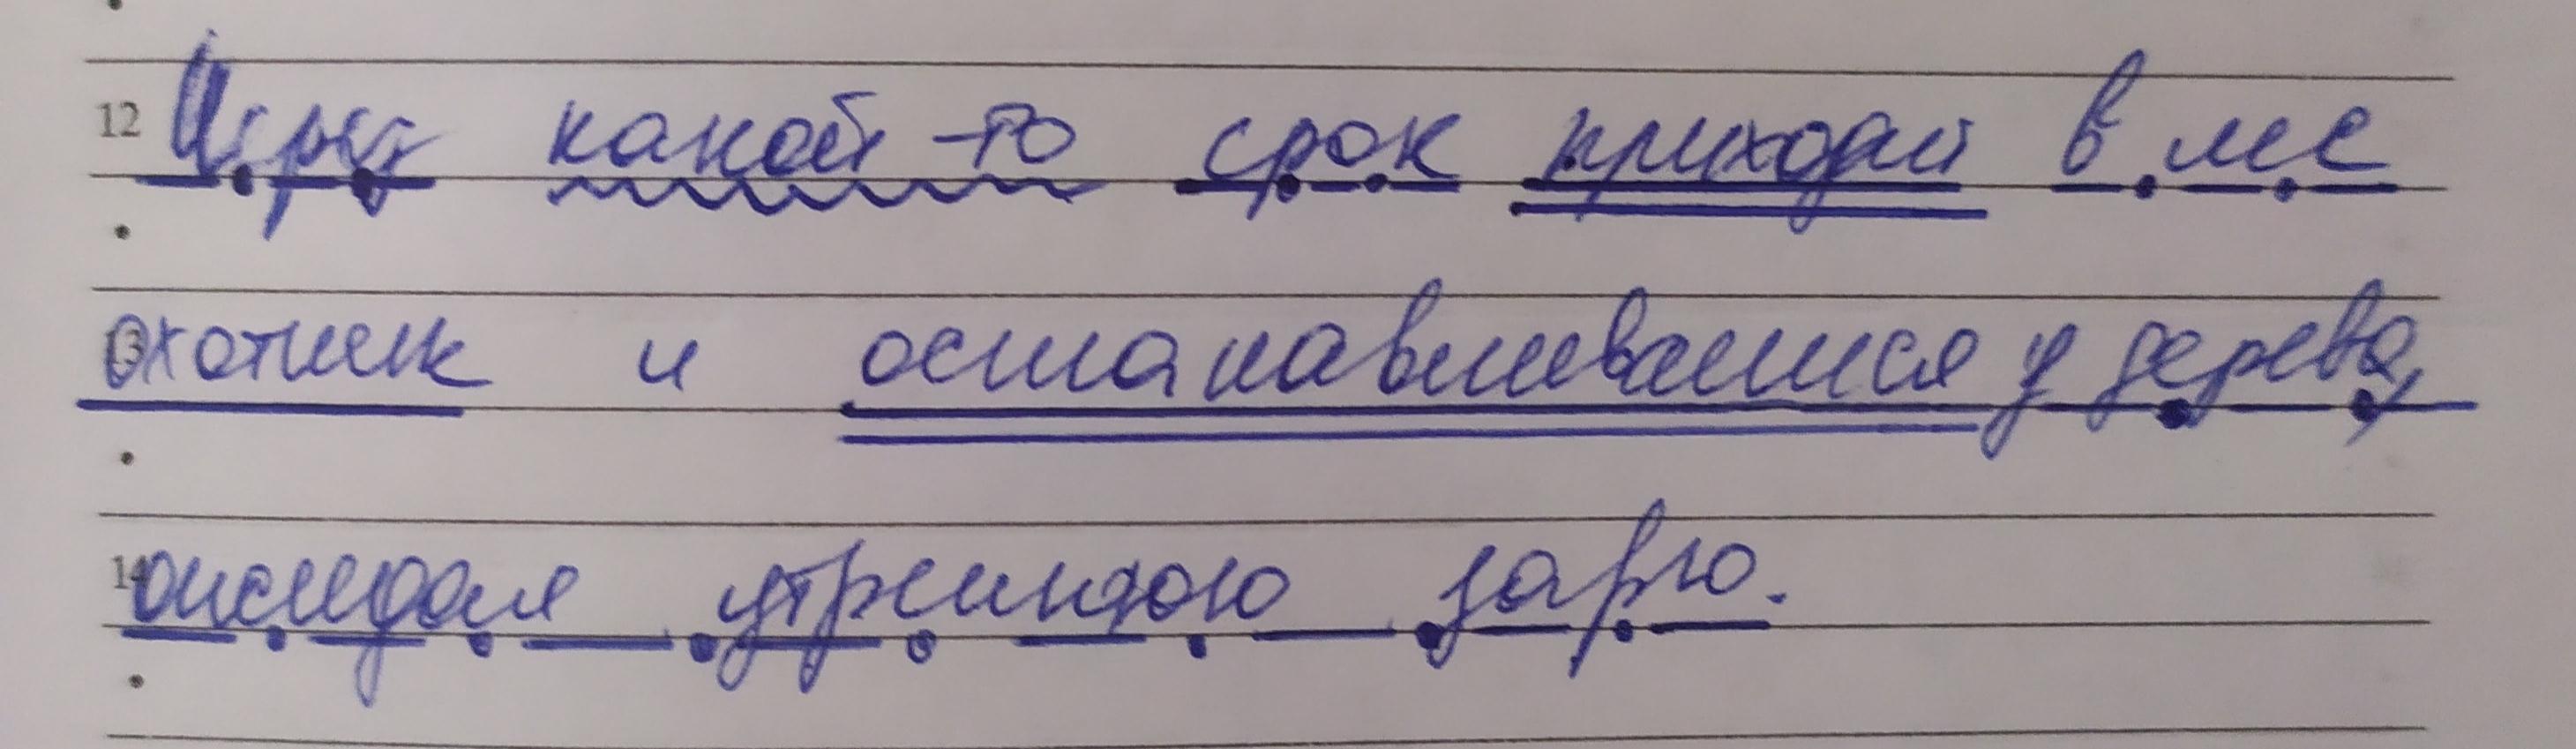 12 Через какой-то срок приходит в лес
13 охотник и останавливается у дерева,
14 ожидая утреннюю зарю.